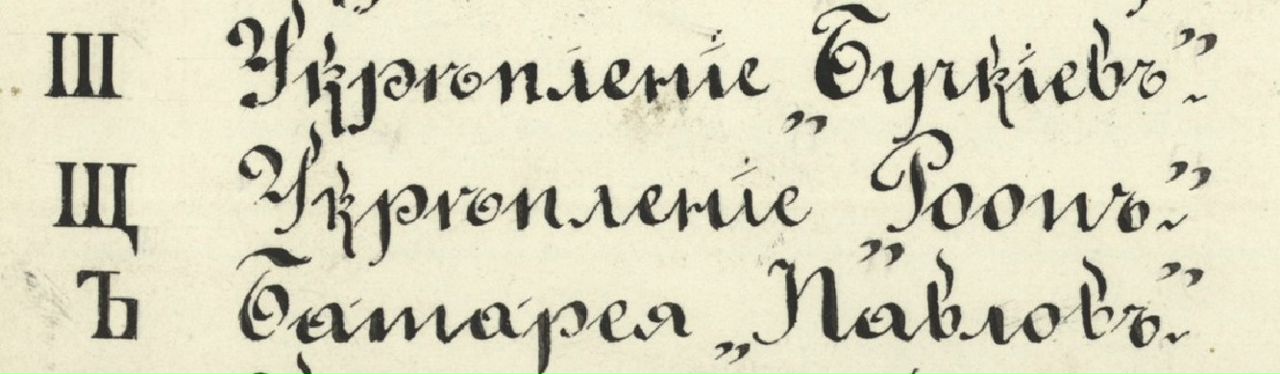 Ш Укрѣпленіе „Бучкіевъ”.
Щ Укрѣпленіе „Роопъ”.
Ъ Батарея „Павловъ”.